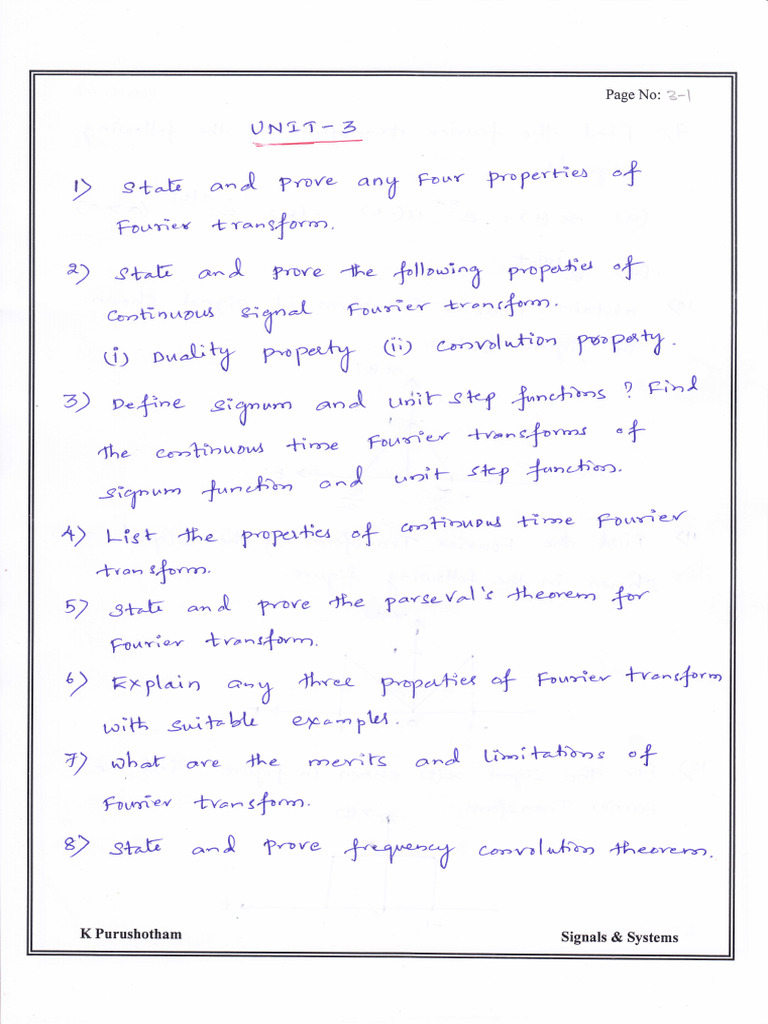 Page No: 3-1
UNIT-3
1) State and prove any four properties of
Fourier transform.
2) State and prove the following properties of
continuous signal Fourier transform.
(i) Duality property (ii) convolution property.
3) Define signum and unit step functions? Find
the continuous time Fourier transforms of
signum function and unit step function.
4) List the properties of continuous time Fourier
transform.
5) State and prove the parseval's theorem for
Fourier transform.
6) Explain any three properties of Fourier transform
with suitable examples.
7) what are the merits and limitations of
Fourier transform.
8) State and prove frequency convolution theorem.
K Purushotham
Signals & Systems